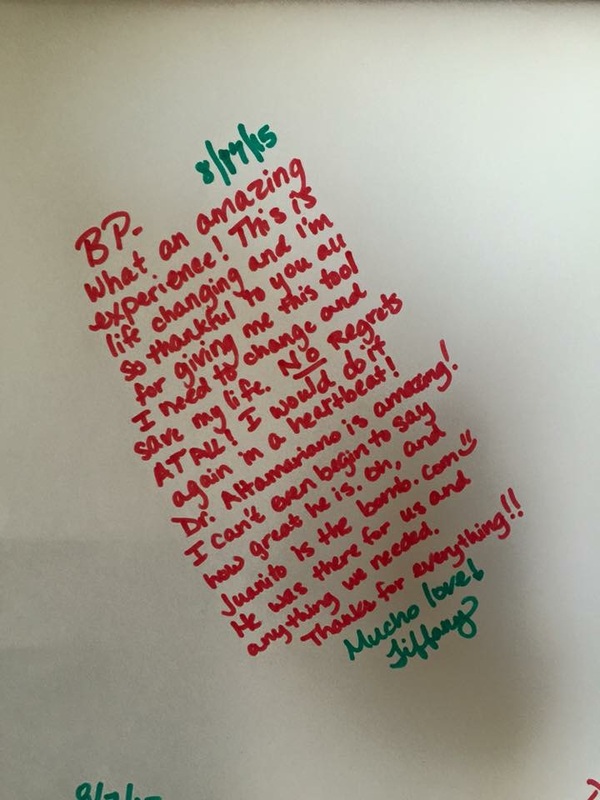 8/17/15
BP-
What an amazing
experience! This is
life changing and I'm
so thankful to you all
for giving me this tool
I need to change and
save my life. No Regrets
AT ALL! I would do it
again in a heartbeat!
Dr. Altamariano is amazing!
I can't even begin to say
how great he is. Oh, and
Juanito is the bomb.com
He was there for us and
anything we needed.
Thanks for everything!!
Mucho love!
Tiffany